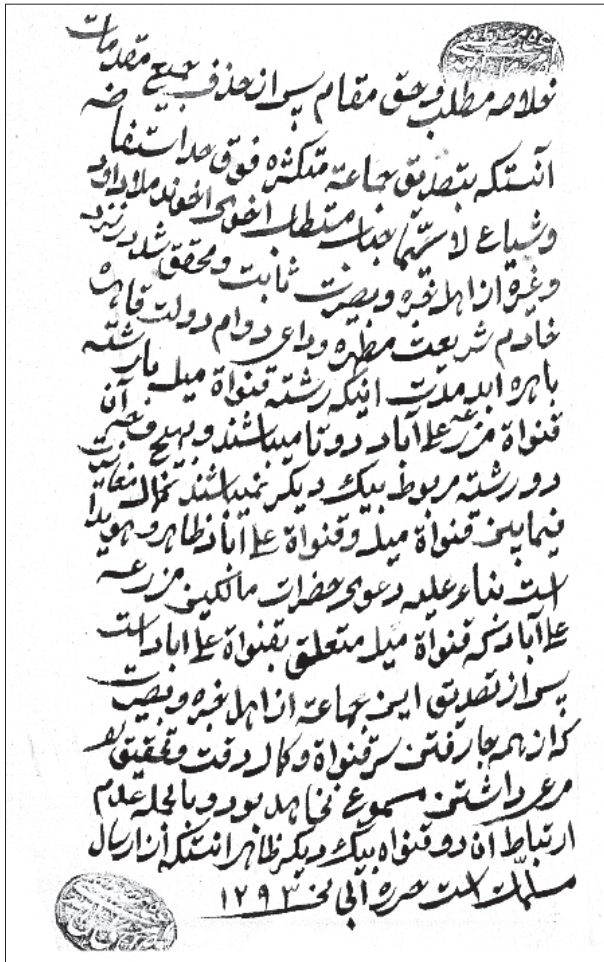 خلاصه مطلب و حق مقام پس از حذف جمیع مقدمات
آنستکه بتصدیق جماعة متکثره فوق حد استفاضه
و شیاع لا سیما جناب مستطاب اخوی اخوند ملا داود
و غیره از اهل خبره و بصیرت ثابت و محقق شد در نزد
خادم شریعت مطهره و داعی دوام دولت قاهره
باهره ابد مدت اینکه رشته قنواة میله با رشته
قنواة مزرعه علی آباد دو تا میباشند و بهیچ وجه آن
دو رشته مربوط بیک دیگر نمیباشند کمال مغایرت
فیمابین قنواة میله و قنواة علی اباد ظاهر و هویدا
است بناء علیه دعوی حضرات مالکین مزرعه
علی آباد که قنواة میله متعلق بقنواة علی اباد است
پس از تصدیق این جماعة از اهل خبره و بصیرت
که از همه جا رفتن سر قنواة و کمال دقت و تحقیق
مرعی داشتن مسموع نخاهد بود و بالجمله عدم
ارتباط آن دو قنواه بیک دیگر ظاهر انستکه از ارسال
مسلمات است حرره ۱۲۹۳